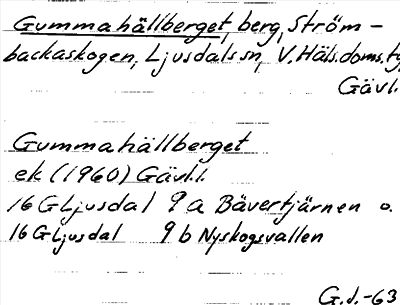 Gummahällberget, berg, Ström-
backaskogen, Ljusdals sn, V. Häls. doms. ty
Gävl.
Gummahällberget
ek (1960) Gävl. l.
16 G Ljusdal 9 a Bävertjärnen o.
16 G Ljusdal 9 b Nyskogsvallen
G. J. -63